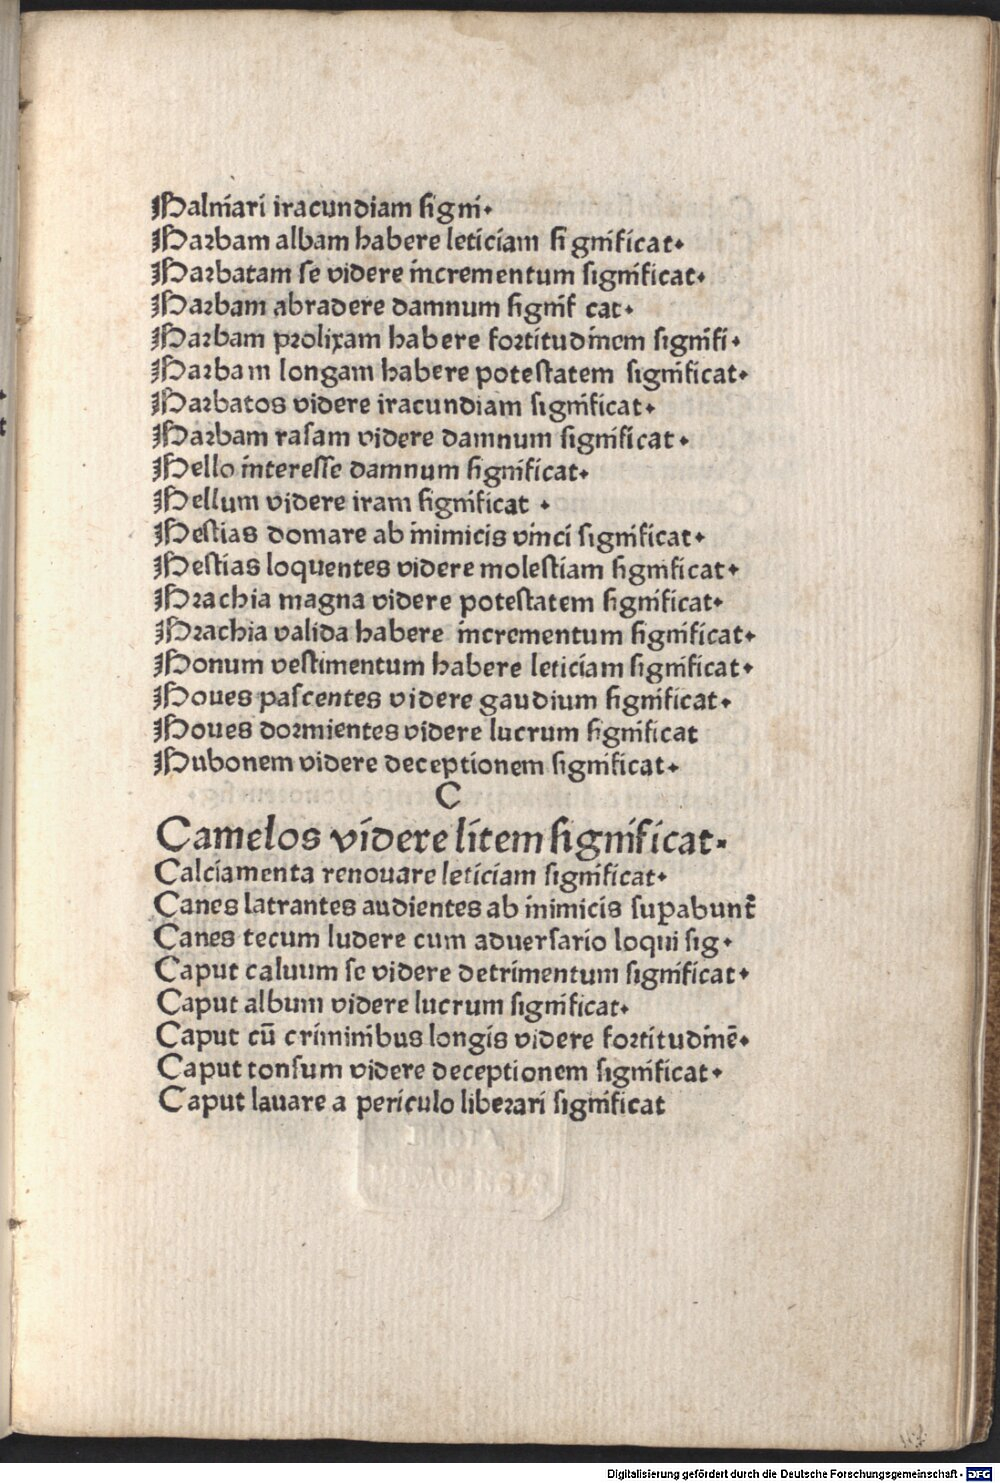 Balniari iracundiam signi.
Barbam albam habere leticiam significat.
Barbatam se videre incrementum significat.
Barbam abradere damnum signif cat.
Barbam prolixam habere fortitudinem signifi.
Barbam longam habere potestatem significat.
Barbatos videre iracundiam significat.
Barbam rasam videre damnum significat.
Bello interesse damnum significat.
Bellum videre iram significat.
Bestias domare ab inimicis vinci significat.
Bestias loquentes videre molestiam significat.
Brachia magna videre potestatem significat.
Brachia valida habere incrementum significat.
Bonum vestimentum habere leticiam significat.
Boues pascentes videre gaudium significat.
Boues dormientes videre lucrum significat
Bubonem videre deceptionem significat.
C
Camelos videre litem significat.
Calciamenta renouare leticiam significat.
Canes latrantes audientes ab inimicis suꝑabunt᷑
Canes tecum ludere cum aduersario loqui sig.
Caput caluum se videre detrimentum significat.
Caput album videre lucrum significat.
Caput cū criminibus longis videre fortitudinē.
Caput tonsum videre deceptionem significat.
Caput lauare a periculo liberari significat
Digitalisierung gefördert durch die Deutsche Forschungsgemeinschaft - DFG